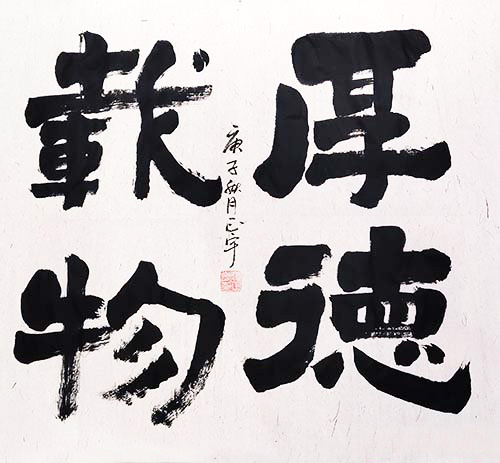 厚德
載物
庚子秋月正宇